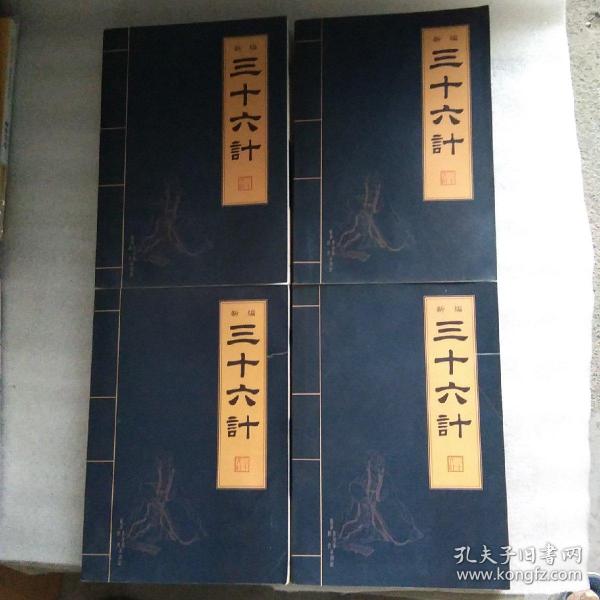 新编
三十六計
新编
三十六計
新编
三十六計
新编
三十六計
孔夫子旧书网
www.kongfz.com